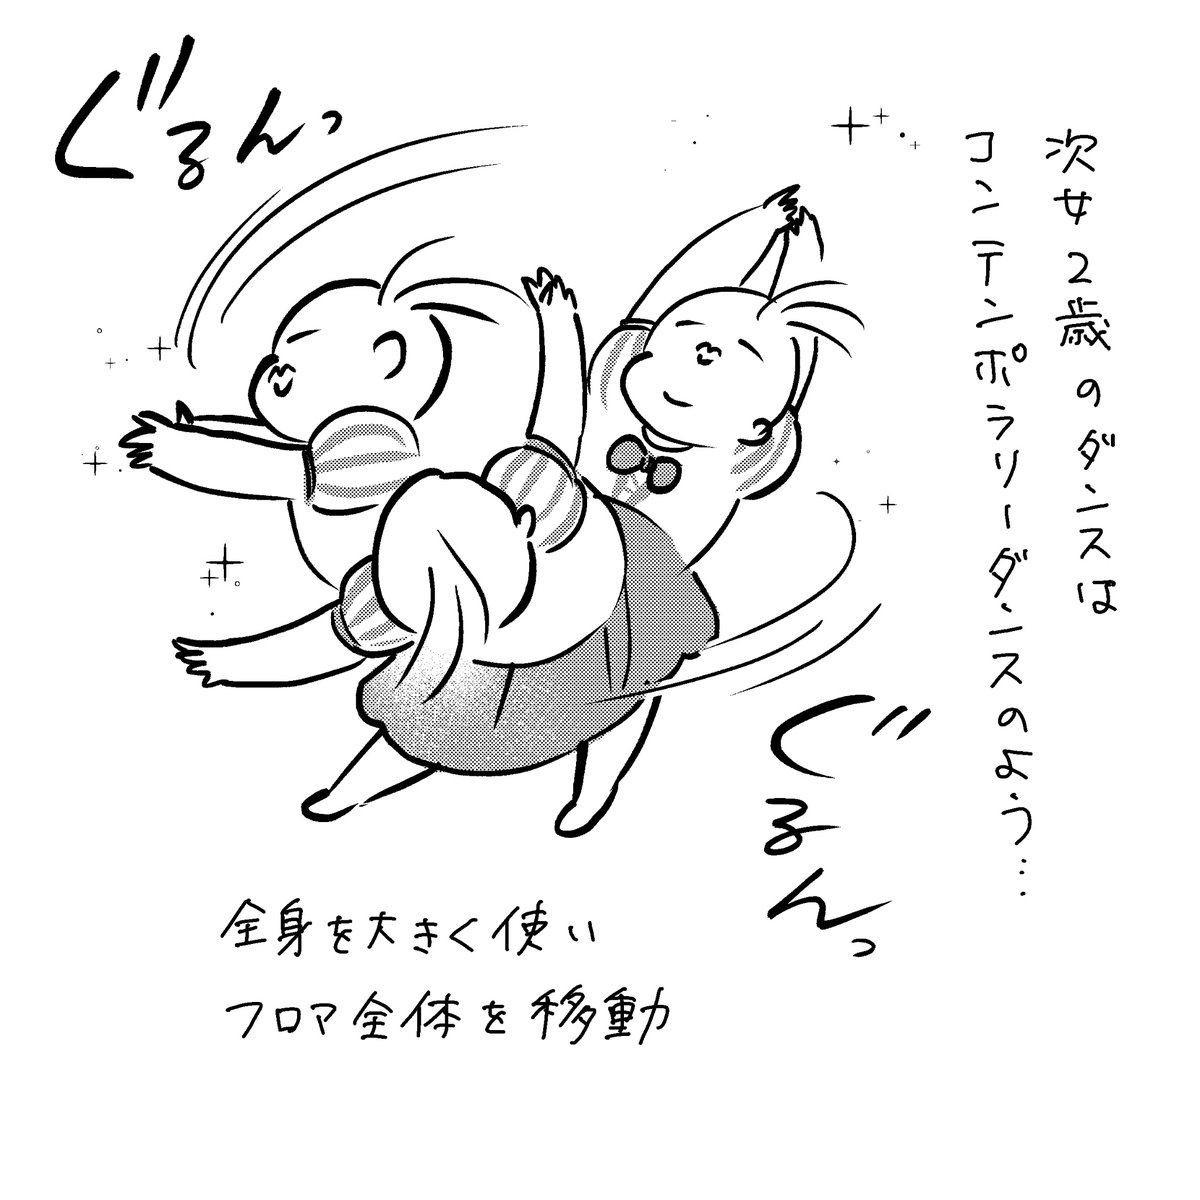 次女2歳のダンスは
コンテンポラリーダンスのよう…
ぐるんっ
ぐるんっ
全身を大きく使い
フロマ全体を移動